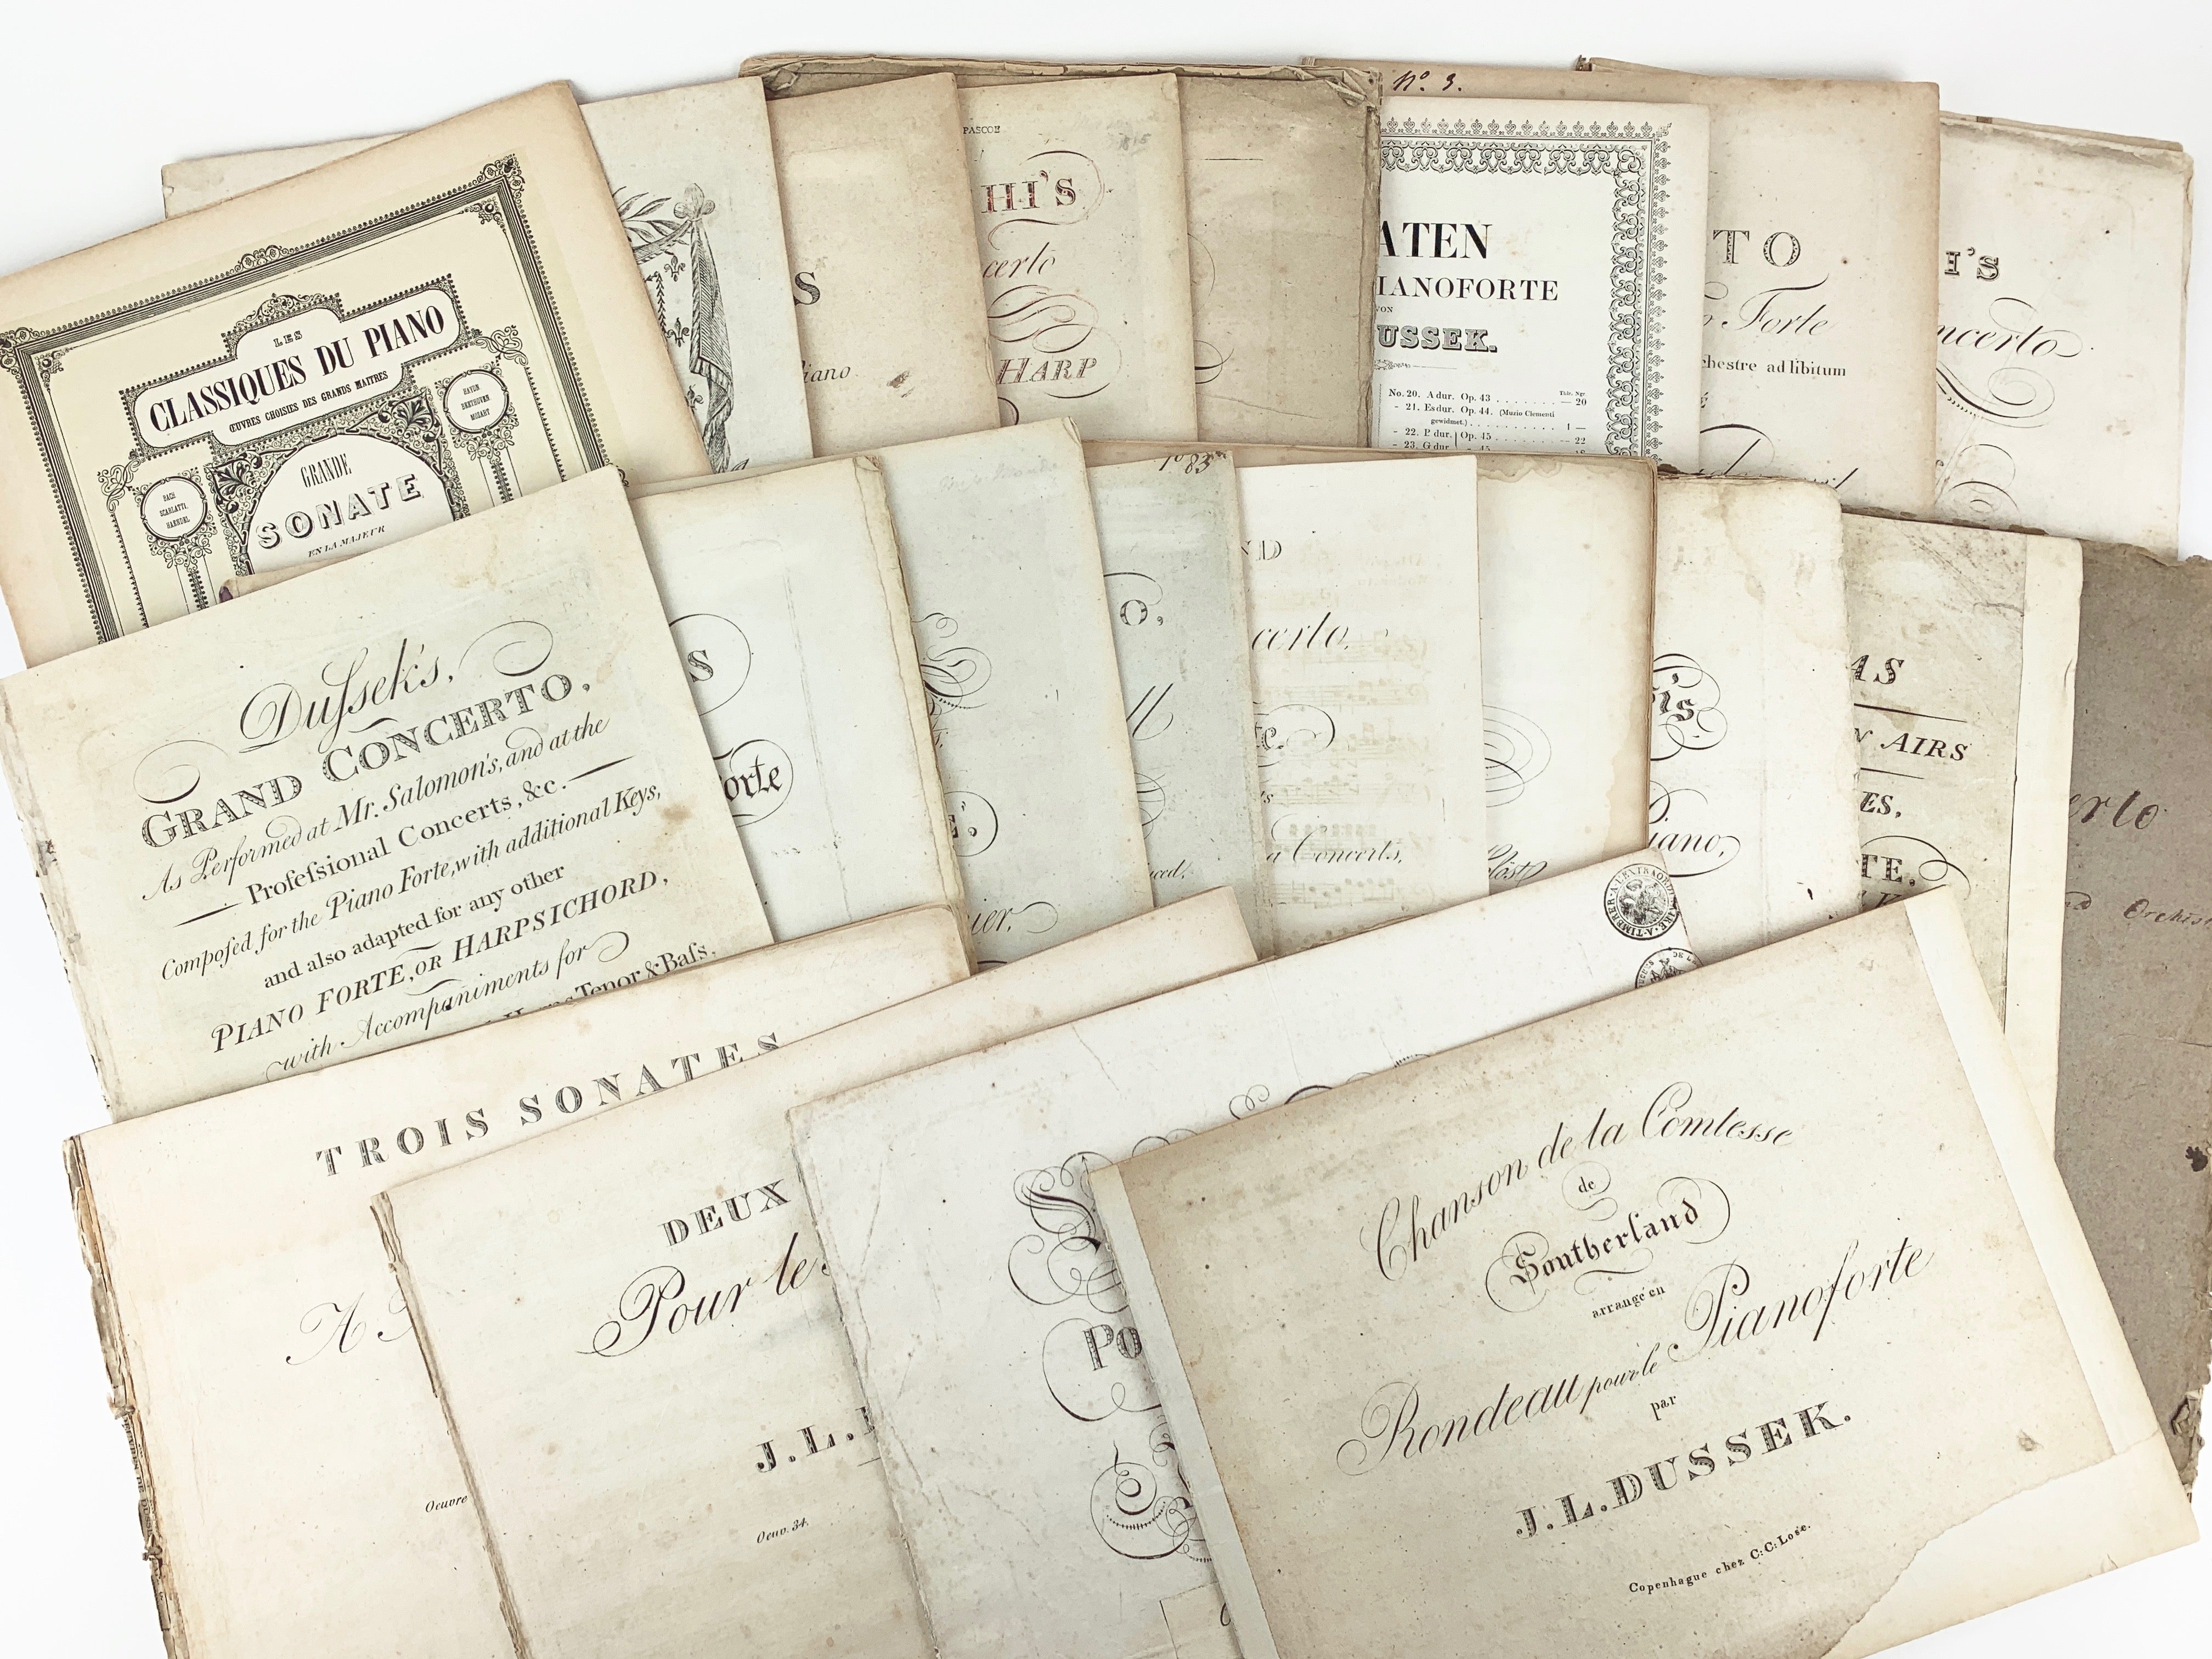 LES
CLASSIQUES DU PIANO
ŒUVRES CHOISIES DES GRANDS MAITRES
HAYDN
BEETHOVEN
MOZART
BACH
SCARLATTI,
HAENDEL
GRANDE
SONATE
EN LA MAJEUR
S
iano
PASCOE
HI'S
certo
HARP
No. 3.
ATEN
IANOFORTE
VON
USSEK.
Thlr. Ngr.
No. 20. A dur. Op. 43 . . . . . . . . — 20
- 21. Es dur. Op. 44. (Muzio Clementi
gewidmet.) . . . . . . . . 1 —
- 22. F. dur. Op. 45 . . . . . . . . — 22
- 23. G dur.
TO
o Forte
chestre ad libitum
I'S
ncerto
Dufsek's,
GRAND CONCERTO,
As Performed at Mr. Salomon's, and at the
Profefsional Concerts, &c.
Compofed for the Piano Forte, with additional Keys,
and also adapted for any other
PIANO FORTE, OR HARPSICHORD,
with Accompaniments for
Horns Tenor & Bafs.
S
orte
E.
ier.
1083
O,
uced.
ND
certo.
&c.
a Concerts,
is
iano,
AS
N AIRS
ES,
TE.
erto
nd Orchest
TROIS SONATES
A
Oeuvre
DEUX
Pour le
J. L.
Oeuv. 34.
A L'EXTRAORDINAIRE
A TIMBRER
PO
Chanson de la Comtesse
de
Southerland
arrangé en
Rondeau pour le Pianoforte
par
J. L. DUSSEK.
Copenhague chez C: C: Lose.